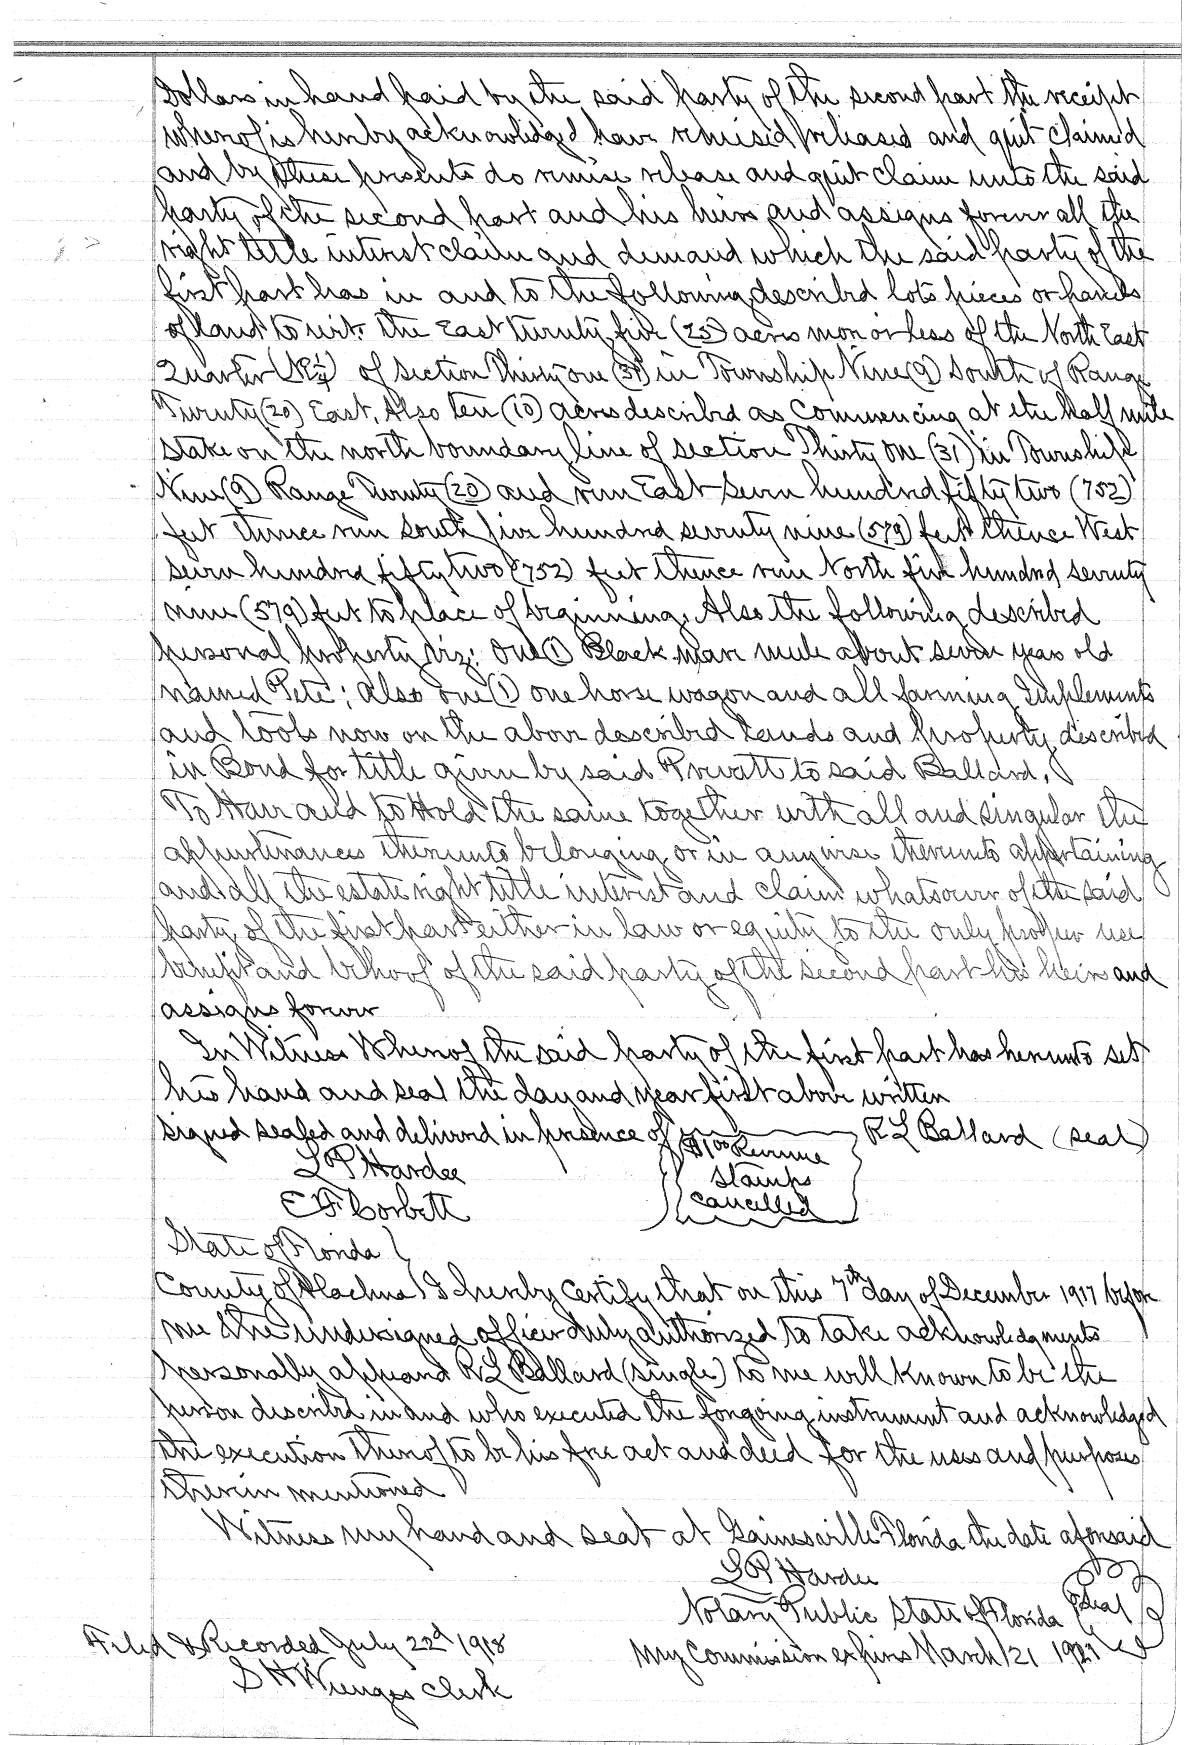 Dollars in hand paid by the said party of the second part the receipt
whereof is hereby acknowledged have remised released and quit claimed
and by these presents do remise release and quit claim unto the said
party of the second part and his heirs and assigns forever all the
right title interest claim and demand which the said party of the
first part has in and to the following described lots pieces or parcels
of land to wit: the East twenty five (25) acres more or less of the North East
Quarter (NE¼) of section Thirty one (31) in Township Nine (9) South of Range
Twenty (20) East. Also ten (10) acres described as Commencing at the half mile
stake on the north boundary line of section Thirty one (31) in Township
Nine (9) Range Twenty (20) and run East seven hundred fifty two (752)
feet thence run South five hundred seventy nine (579) feet thence West
seven hundred fifty two (752) feet thence run North five hundred seventy
nine (579) feet to place of beginning. Also the following described
personal property viz: One (1) Black mare mule about seven years old
named "Pete"; also one (1) one horse wagon and all farming Implements
and tools now on the above described lands and property described
in Bond for title given by said Prevatt to said Ballard.
To Have and to Hold the same together with all and singular the
appurtenances thereunto belonging or in anywise thereunto appertaining
and all the estate right title interest and claim whatsoever of the said
party of the first part either in law or equity to the only proper use
benefit and behoof of the said party of the second part his heirs and
assigns forever
In Witness Whereof the said party of the first part has hereunto set
his hand and seal the day and year first above written
signed sealed and delivered in presence of R L Ballard (seal)
L P Hardee $1.00 Revenue
stamps
E F Corbett cancelled
State of Florida
County of Alachua I hereby certify that on this 7th day of December 1917 before
me the undersigned officer duly authorized to take acknowledgments
personally appeared R L Ballard (single) to me well known to be the
person described in and who executed the foregoing instrument and acknowledged
the execution thereof to be his free act and deed for the uses and purposes
therein mentioned
Witness my hand and seal at Gainesville Florida the date aforesaid
L P Hardee
Notary Public State of Florida (Seal)
Filed & Recorded July 22d 1918 My Commission expires March 21 1921
S H Wienges Clerk